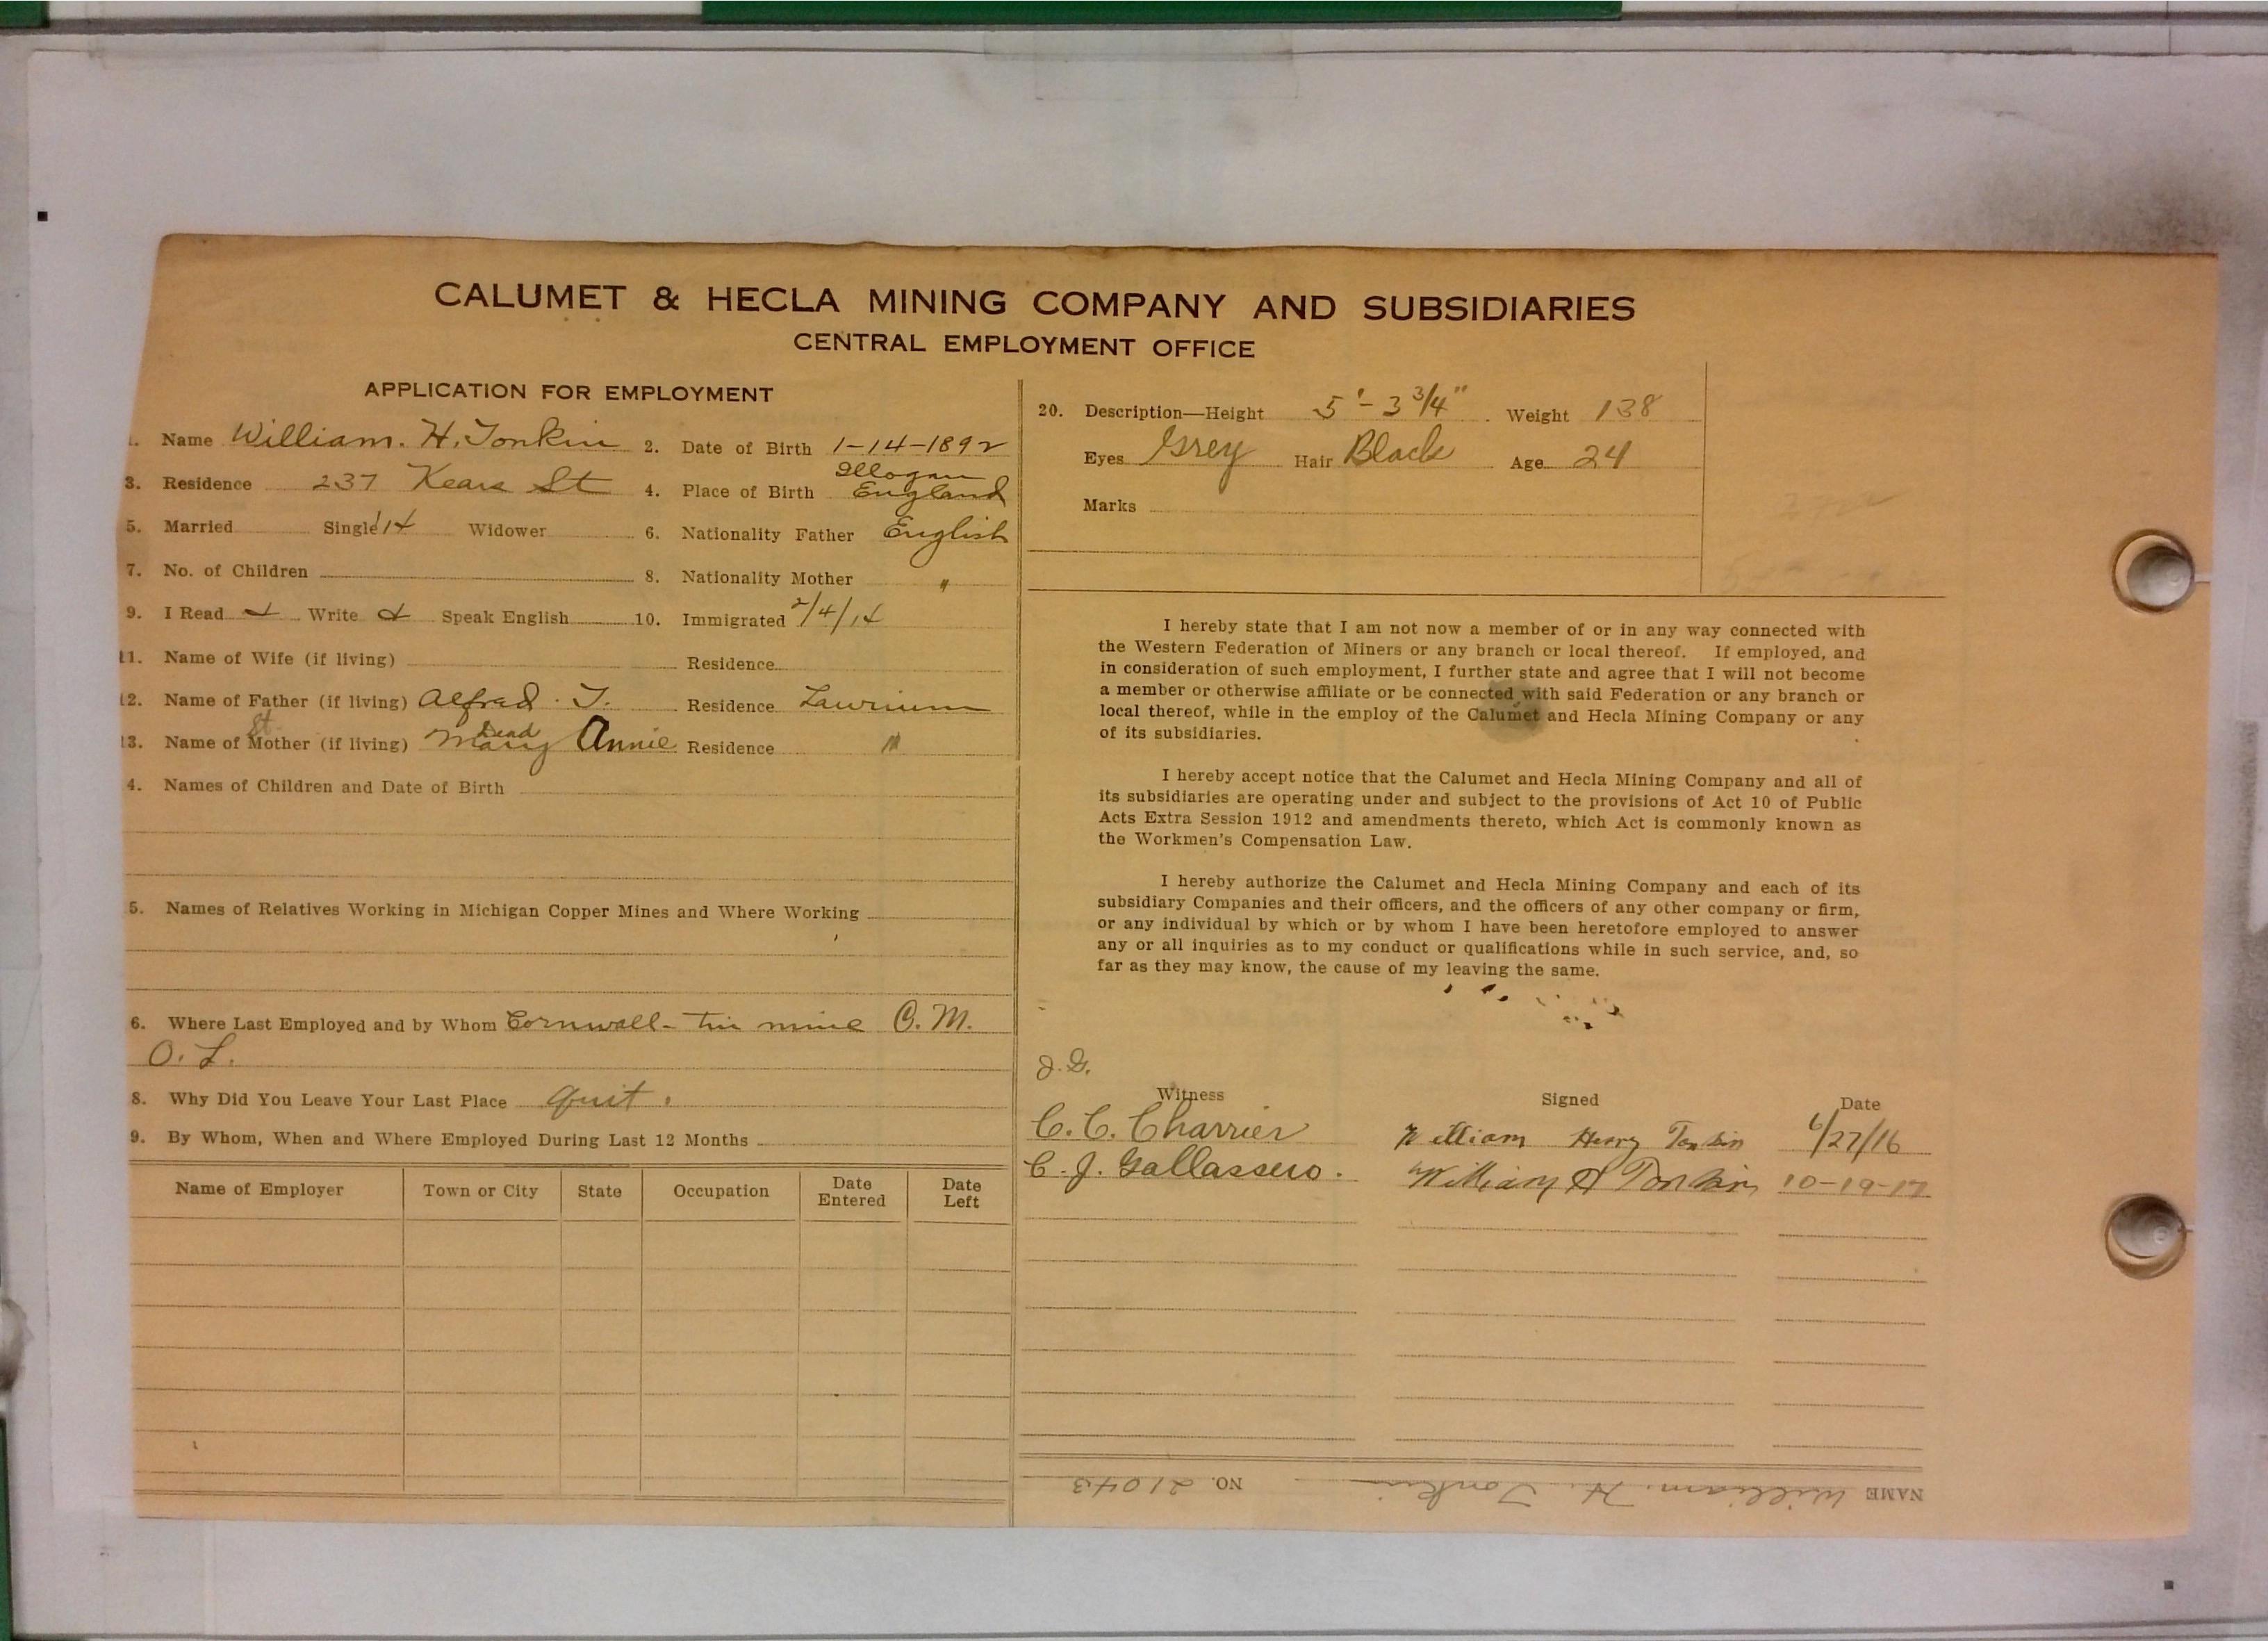 CALUMET & HECLA MINING COMPANY AND SUBSIDIARIES
CENTRAL EMPLOYMENT OFFICE
APPLICATION FOR EMPLOYMENT
1. Name William. H. Tonkin 2. Date of Birth 1-14-1892
3. Residence 237 Kears St 4. Place of Birth Illogan England
5. Married Single 1 Widower 6. Nationality Father English
7. No. of Children 8. Nationality Mother "
9. I Read Write Speak English 10. Immigrated 2/4/14
11. Name of Wife (if living) Residence
12. Name of Father (if living) Alfred. T. Residence Laurium
13. Name of St Mother (if living) Dead Mary Annie Residence "
4. Names of Children and Date of Birth
5. Names of Relatives Working in Michigan Copper Mines and Where Working
6. Where Last Employed and by Whom Cornwall - tin mine C. M.
O. L.
8. Why Did You Leave Your Last Place quit.
9. By Whom, When and Where Employed During Last 12 Months
Name of Employer Town or City State Occupation Date Entered Date Left
20. Description—Height 5'-3 3/4" Weight 138
Eyes Grey Hair Black Age 24
Marks
I hereby state that I am not now a member of or in any way connected with
the Western Federation of Miners or any branch or local thereof. If employed, and
in consideration of such employment, I further state and agree that I will not become
a member or otherwise affiliate or be connected with said Federation or any branch or
local thereof, while in the employ of the Calumet and Hecla Mining Company or any
of its subsidiaries.
I hereby accept notice that the Calumet and Hecla Mining Company and all of
its subsidiaries are operating under and subject to the provisions of Act 10 of Public
Acts Extra Session 1912 and amendments thereto, which Act is commonly known as
the Workmen's Compensation Law.
I hereby authorize the Calumet and Hecla Mining Company and each of its
subsidiary Companies and their officers, and the officers of any other company or firm,
or any individual by which or by whom I have been heretofore employed to answer
any or all inquiries as to my conduct or qualifications while in such service, and, so
far as they may know, the cause of my leaving the same.
J. G.
Witness Signed Date
C. C. Charrier William Henry Tonkin 6/27/16
C. J. Gallassero. William H Tonkin 10-19-17
NAME William. H. Tonkin NO. 21043